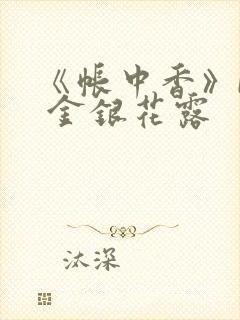 《帐中香》
金银花露
汰深